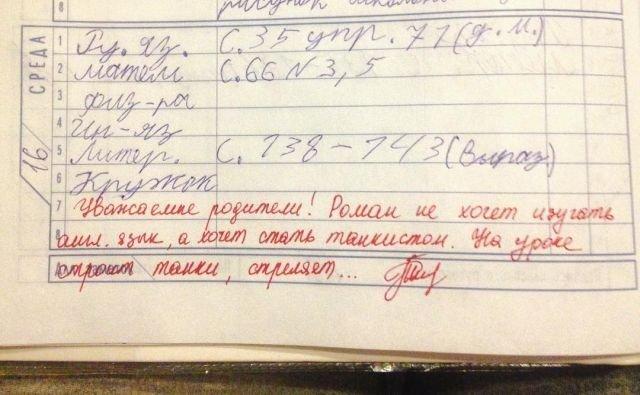 8 рисунок
СРЕДА
16
1 Ру. яз. С. 35 упр. 71 (д. м.)
2 матем С. 66 N 3, 5
3 физ-ра
4 Ин-яз
5 Литер. С. 138 – 143 (Выраз.)
6 Кружок
7 Уважаемые родители! Роман не хочет изучать
8 англ. язык, а хочет стать танкистом. На уроке
строит танки, стреляет...